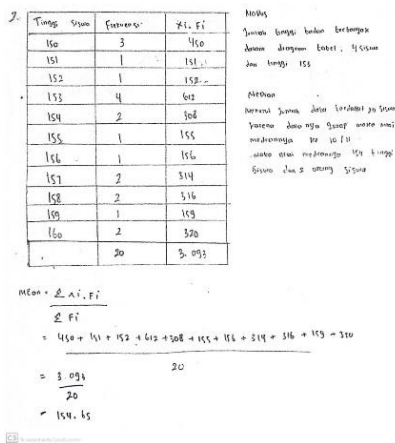 2.
Tinggi Siswa Frekuensi xi.Fi
150 3 450
151 1 151
152 1 152
153 4 612
154 2 308
155 1 155
156 1 156
157 2 314
158 2 316
159 1 159
160 2 320
20 3.093
Modus
Jumlah tinggi badan terbanyak
dalam diagram tabel, 4 siswa
dan tinggi 153
Median
jumlah data terdapat 20 siswa
karena data nya genap maka nilai
mediannya ke 10/11
maka nilai mediannya 154 tinggi
siswa dan 2 orang siswa
Mean = Σ xi.Fi
Σ Fi
= 450 + 151 + 152 + 612 + 308 + 155 + 156 + 314 + 316 + 159 + 320
20
= 3.093
20
= 154.65
CS